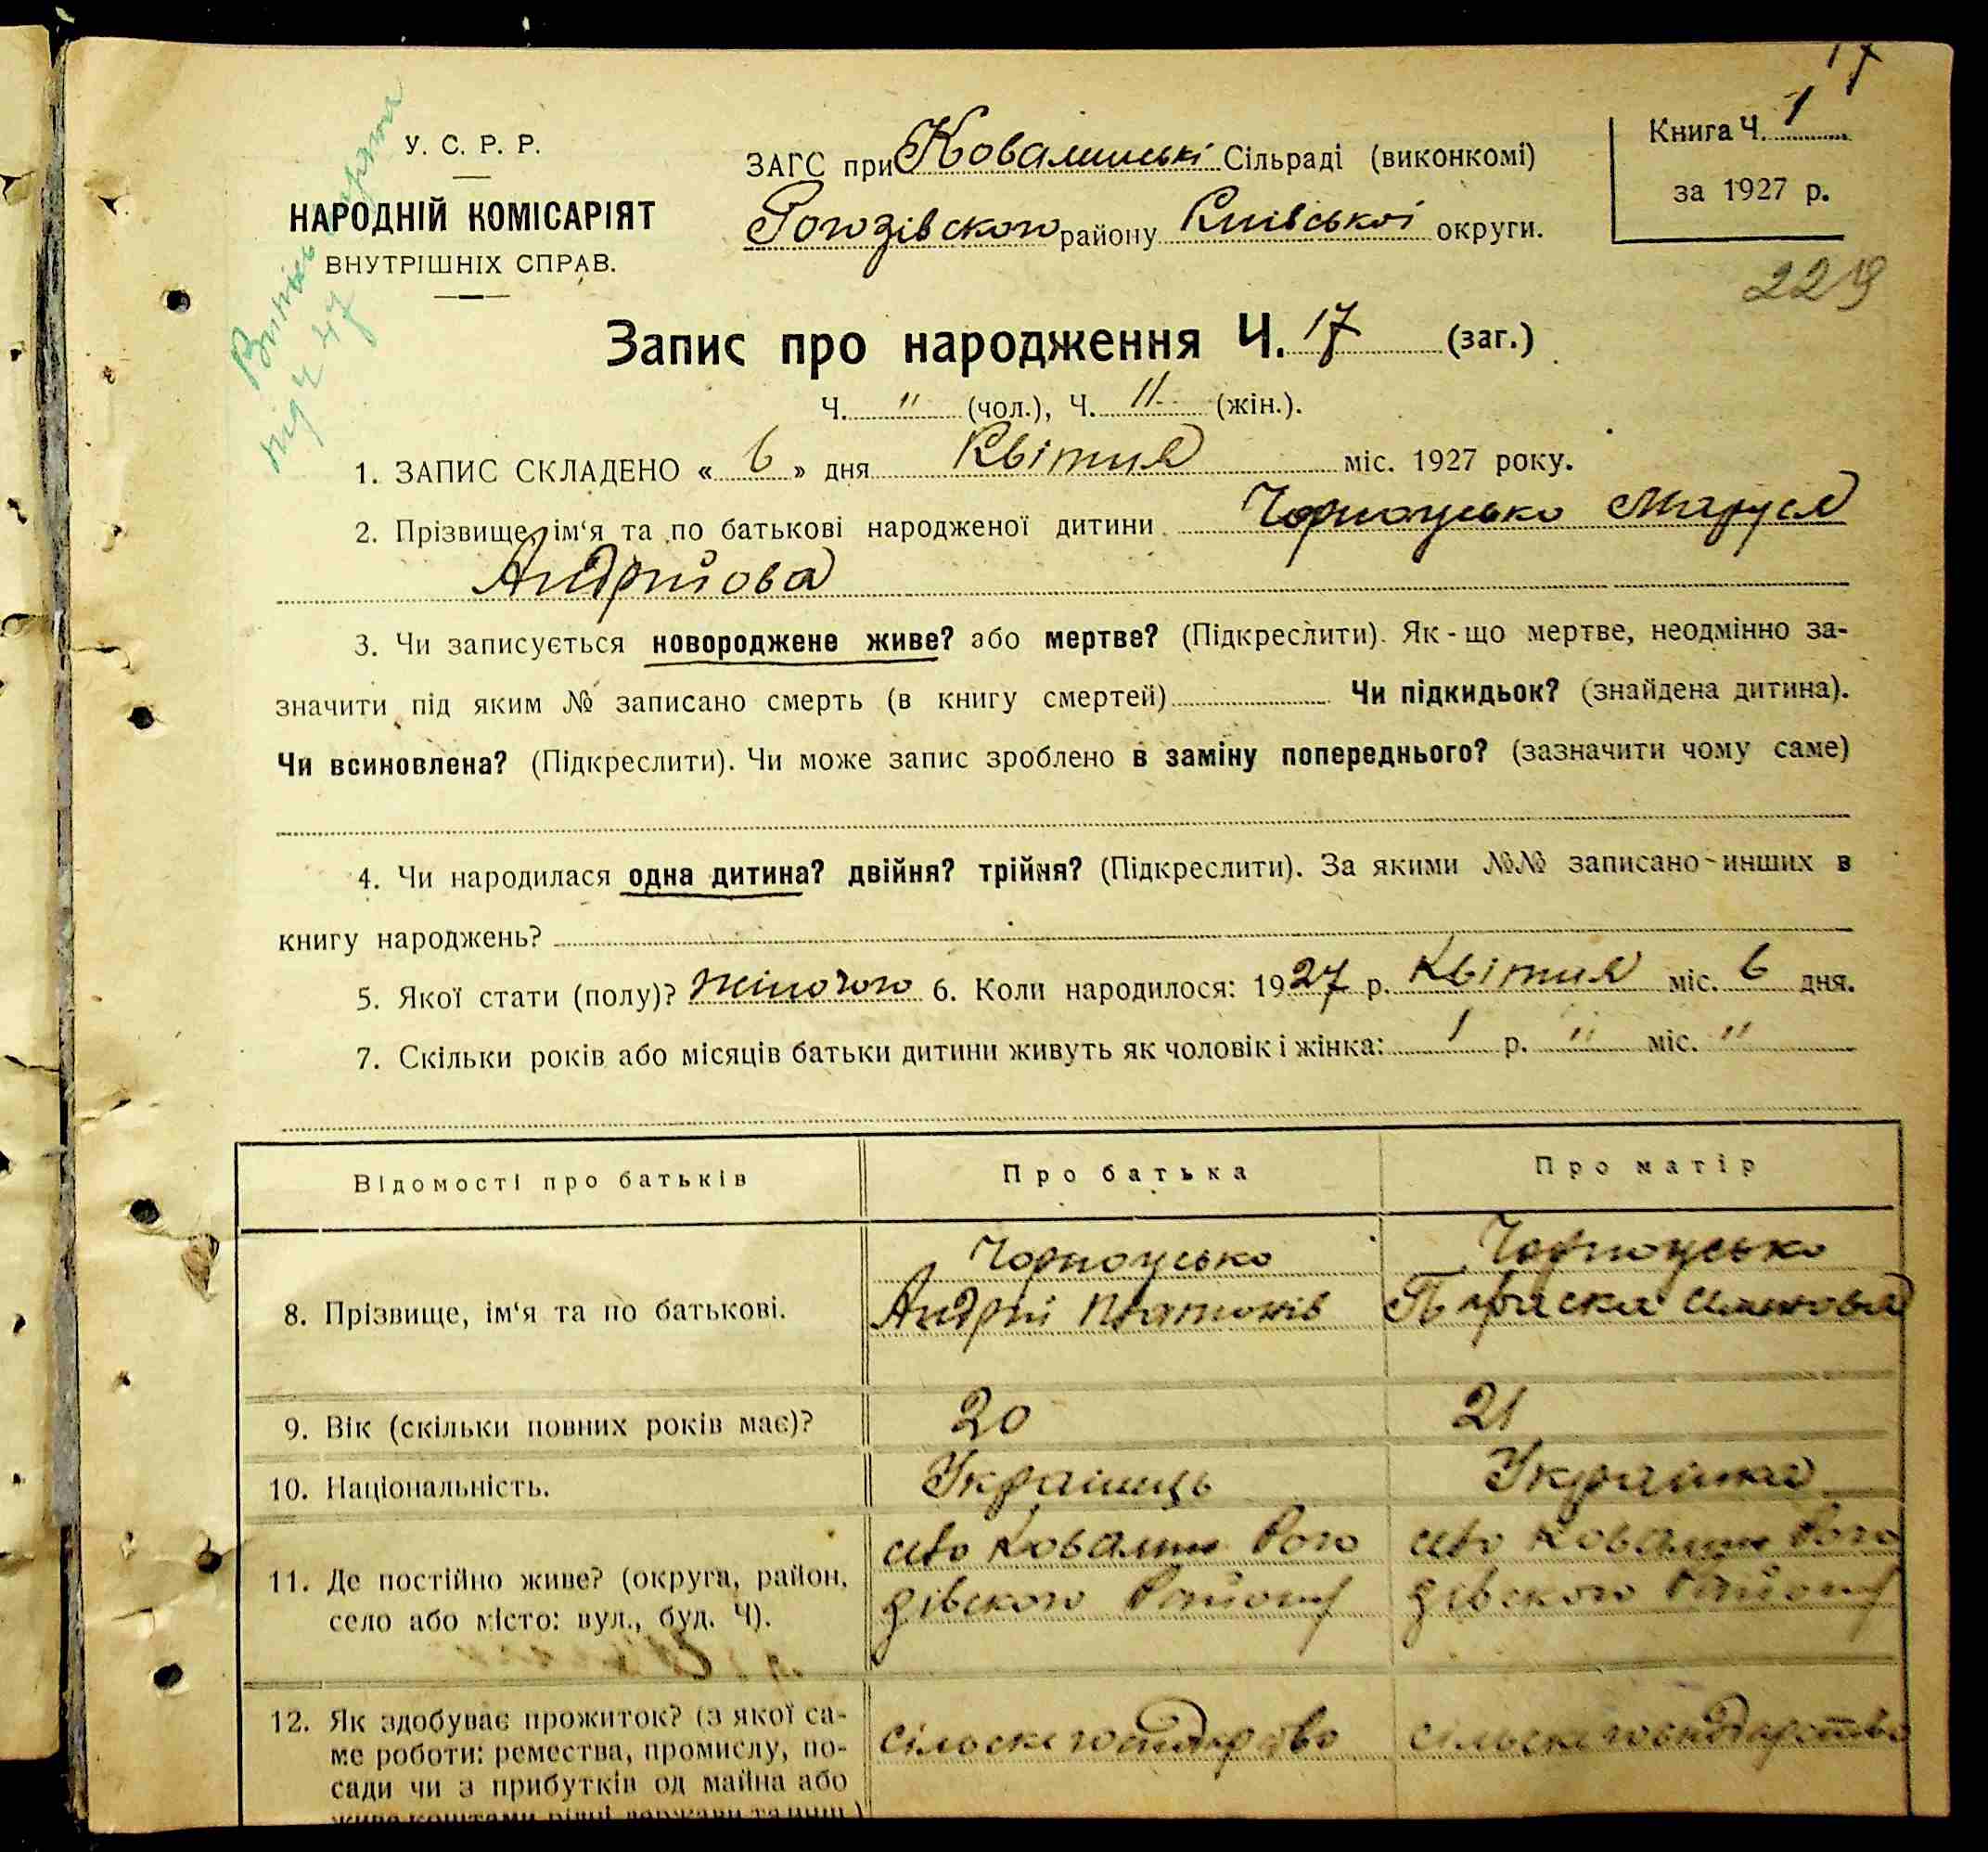 17
У. С. Р. Р.
НАРОДНІЙ КОМІСАРІЯТ
ВНУТРІШНІХ СПРАВ.
ЗАГС при Ковалинські Сільраді (виконкомі)
Рогозівского району Київської округи.
Книга Ч. 1
за 1927 р.
229
Випись
під Ч 47
Запис про народження Ч. 17 (заг.)
Ч. " (чол.), Ч. 11 (жін.).
1. ЗАПИС СКЛАДЕНО « 6 » дня Квітня міс. 1927 року.
2. Прізвище, ім'я та по батькові народженої дитини Чорноусько Маруся
Андрийова
3. Чи записується новороджене живе? або мертве? (Підкреслити). Як-що мертве, неодмінно за-
значити під яким № записано смерть (в книгу смертей) Чи підкидьок? (знайдена дитина).
Чи всиновлена? (Підкреслити). Чи може запис зроблено в заміну попереднього? (зазначити чому саме)
4. Чи народилася одна дитина? двійня? трійня? (Підкреслити). За якими №№ записано инших в
книгу народжень?
5. Якої стати (полу)? жіночого 6. Коли народилося: 1927 р. Квітня міс. 6 дня.
7. Скільки років або місяців батьки дитини живуть як чоловік і жінка: 1 р. " міс. "
Відомості про батьків Про батька Про матір
Чорноусько Чорноусько
8. Прізвище, ім'я та по батькові. Андрій Платонів Параска Семенова
9. Вік (скільки повних років має)? 20 21
10. Національність. Українець Українка
село Ковалин Рого село Ковалин Рого
11. Де постійно живе? (округа, район, зівского Району зівского Району
село або місто: вул., буд. Ч).
12. Як здобуває прожиток? (з якої са- сільске господарство сільске господарство
ме роботи: ремества, промислу, по-
сади чи з прибутків од майна або
живе коштами рідні, держави та инш.)